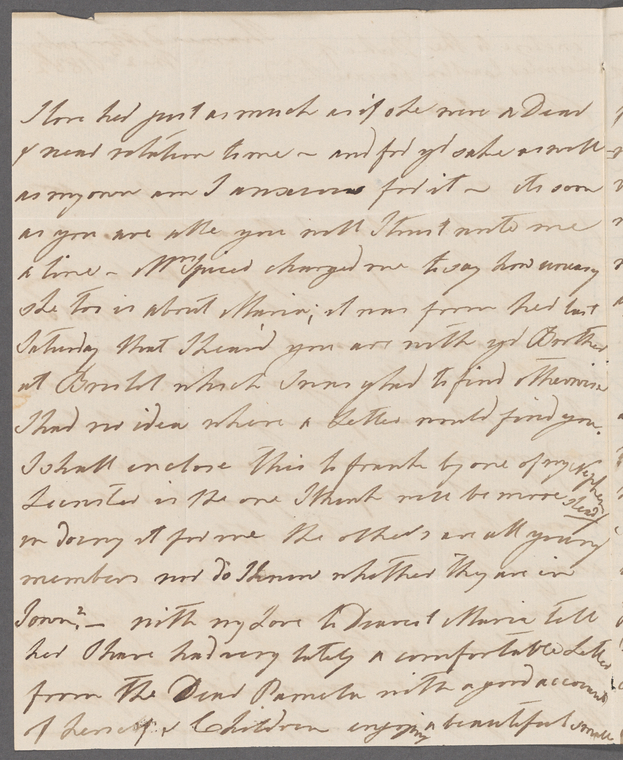 I love her just as much as if she were a Dear
& near relation to me – and for yr. sake as well
as my own am I anxious for it – As soon
as you are able you will I trust write me
a line – Mrs. Spicer charged me to say how uneasy
she too is about Maria; it was from her last
Saturday that I heard you are with yr. Brother
at Bristol which I was glad to find otherwise
I had no idea where a Letter would find you.
I shall enclose this to frank by one of my Nephews
Leinster is the one I think will be more steady
in doing it for me the others are all young
members nor do I know whether they are in
Town? – with my Love to Dearest Maria tell
her I have had very lately a comfortable Letter
from the Dear Pamela with a good account
of herself & Children enjoying a beautiful small